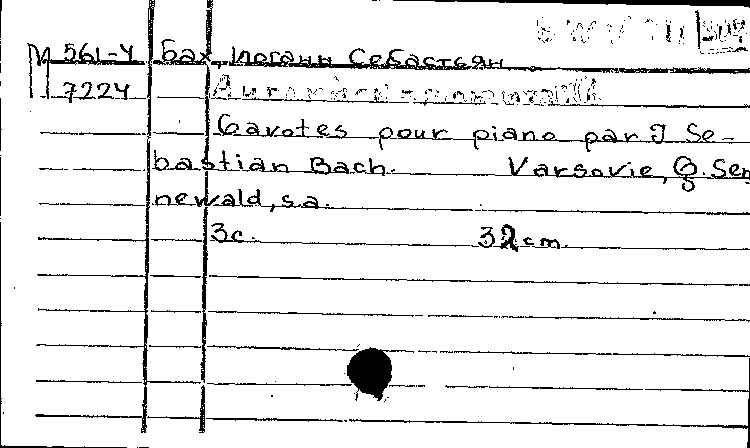 М 561-4 Бах, Іоганн Себастьян
7224
Gavotes pour piano par J Se-
bastian Bach. Varsovie, G. Sen
newald, s.a.
3с. 32 cm.